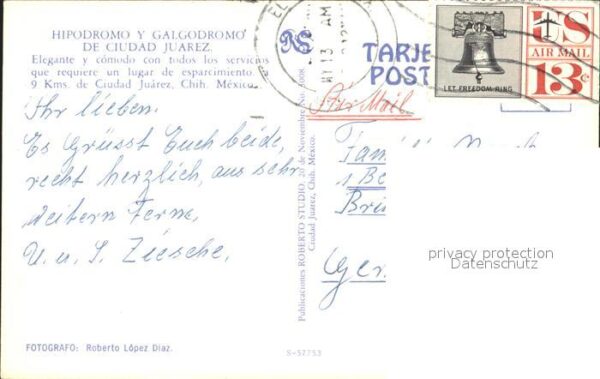 HIPODROMO Y GALGODROMO
DE CIUDAD JUAREZ.
Elegante y cómodo con todos los servicios
que requiere un lugar de esparcimiento.
9 Kms. de Ciudad Juárez, Chih. México.
Ihr lieben.
Es Grüsst Euch beide,
recht herzlich, aus sehr
weitern Ferne,
U. u. S. Ziesche.
FOTOGRAFO: Roberto López Díaz.
Publicaciones ROBERTO STUDIO, 20 de Noviembre No. 3008
Ciudad Juárez, Chih. México.
S-57753
EL
AM
13
RS
TARJE
POST
Air Mail
US
AIR MAIL
13c
LET FREEDOM RING
Fam
Ger
privacy protection
Datenschutz